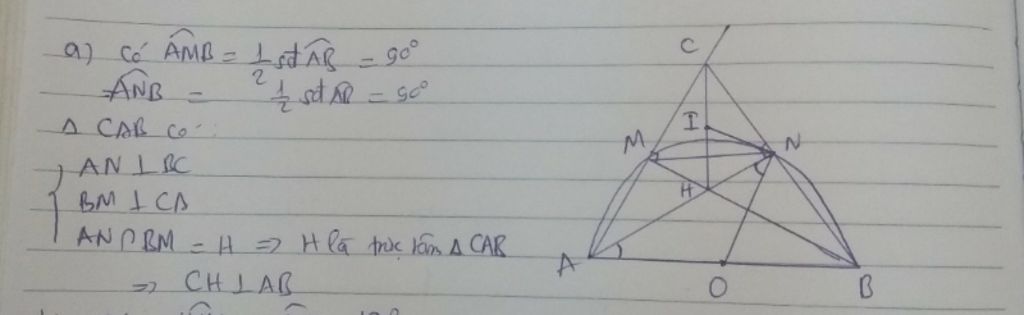 a) Có AMB = 1/2 sđ AB = 90°
ANB = 1/2 sđ AB = 90°
Δ CAB có:
AN ⊥ BC
BM ⊥ CA
AN ∩ BM = H => H là trực tâm Δ CAB
=> CH ⊥ AB
C
I
M
N
H
A
O
B